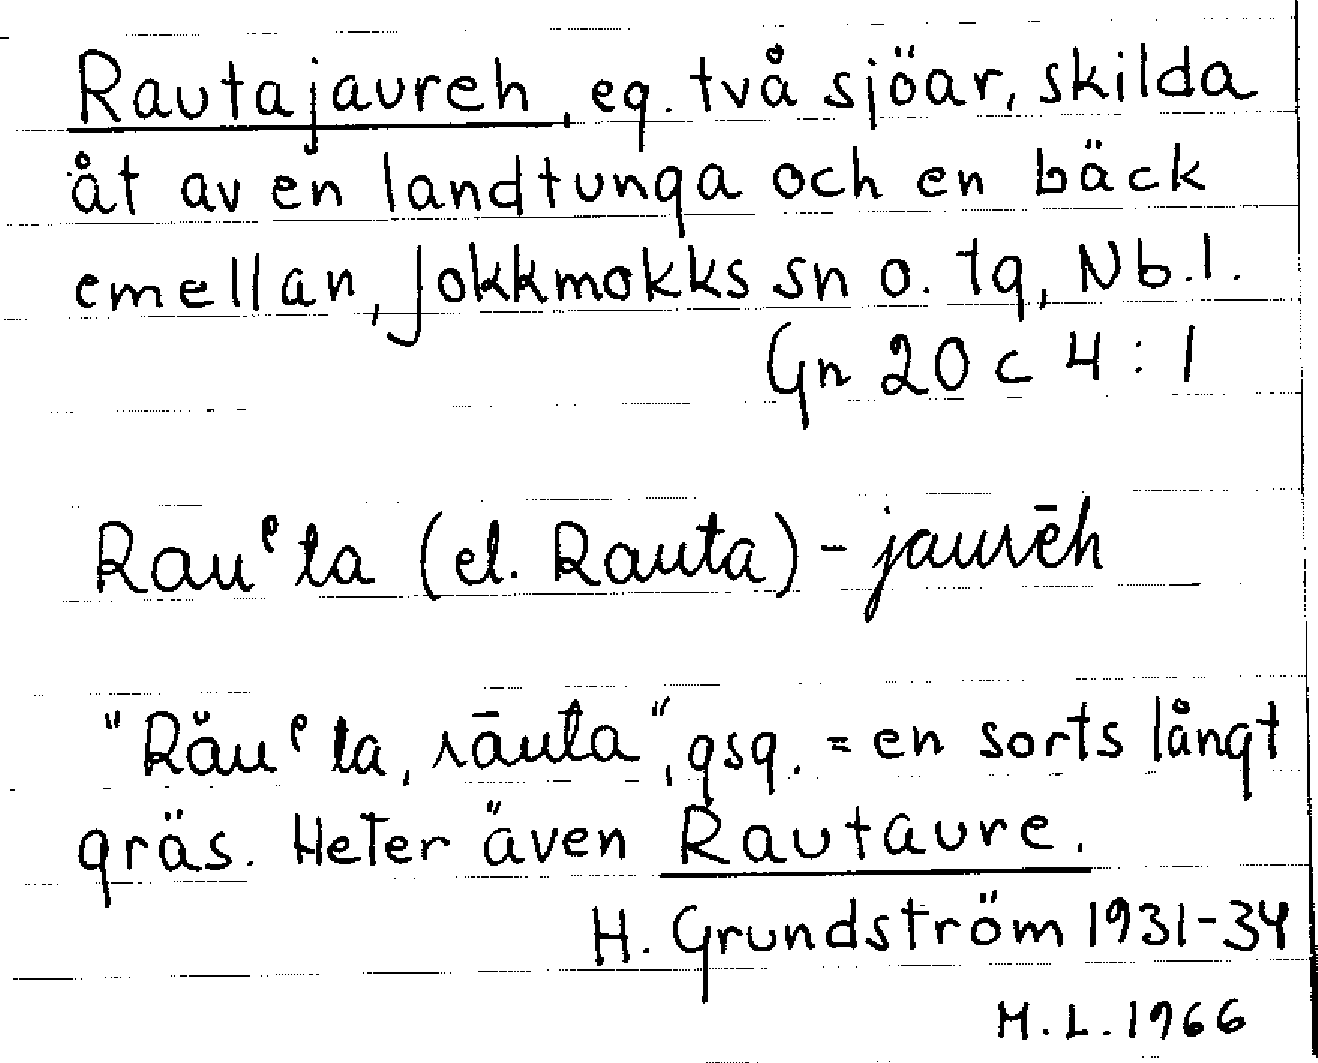 Rautajaureh, eg. två sjöar, skilda
åt av en landtunga och en bäck
emellan, Jokkmokks sn o. tg, Nb.l.
Gn 20 c 4 : 1
Rauˁta (el. Rauta) - jaurēh
"Răuˁta, rāuta", gsg. = en sorts långt
gräs. Heter även Rautaure.
H. Grundström 1931-34
M.L. 1966